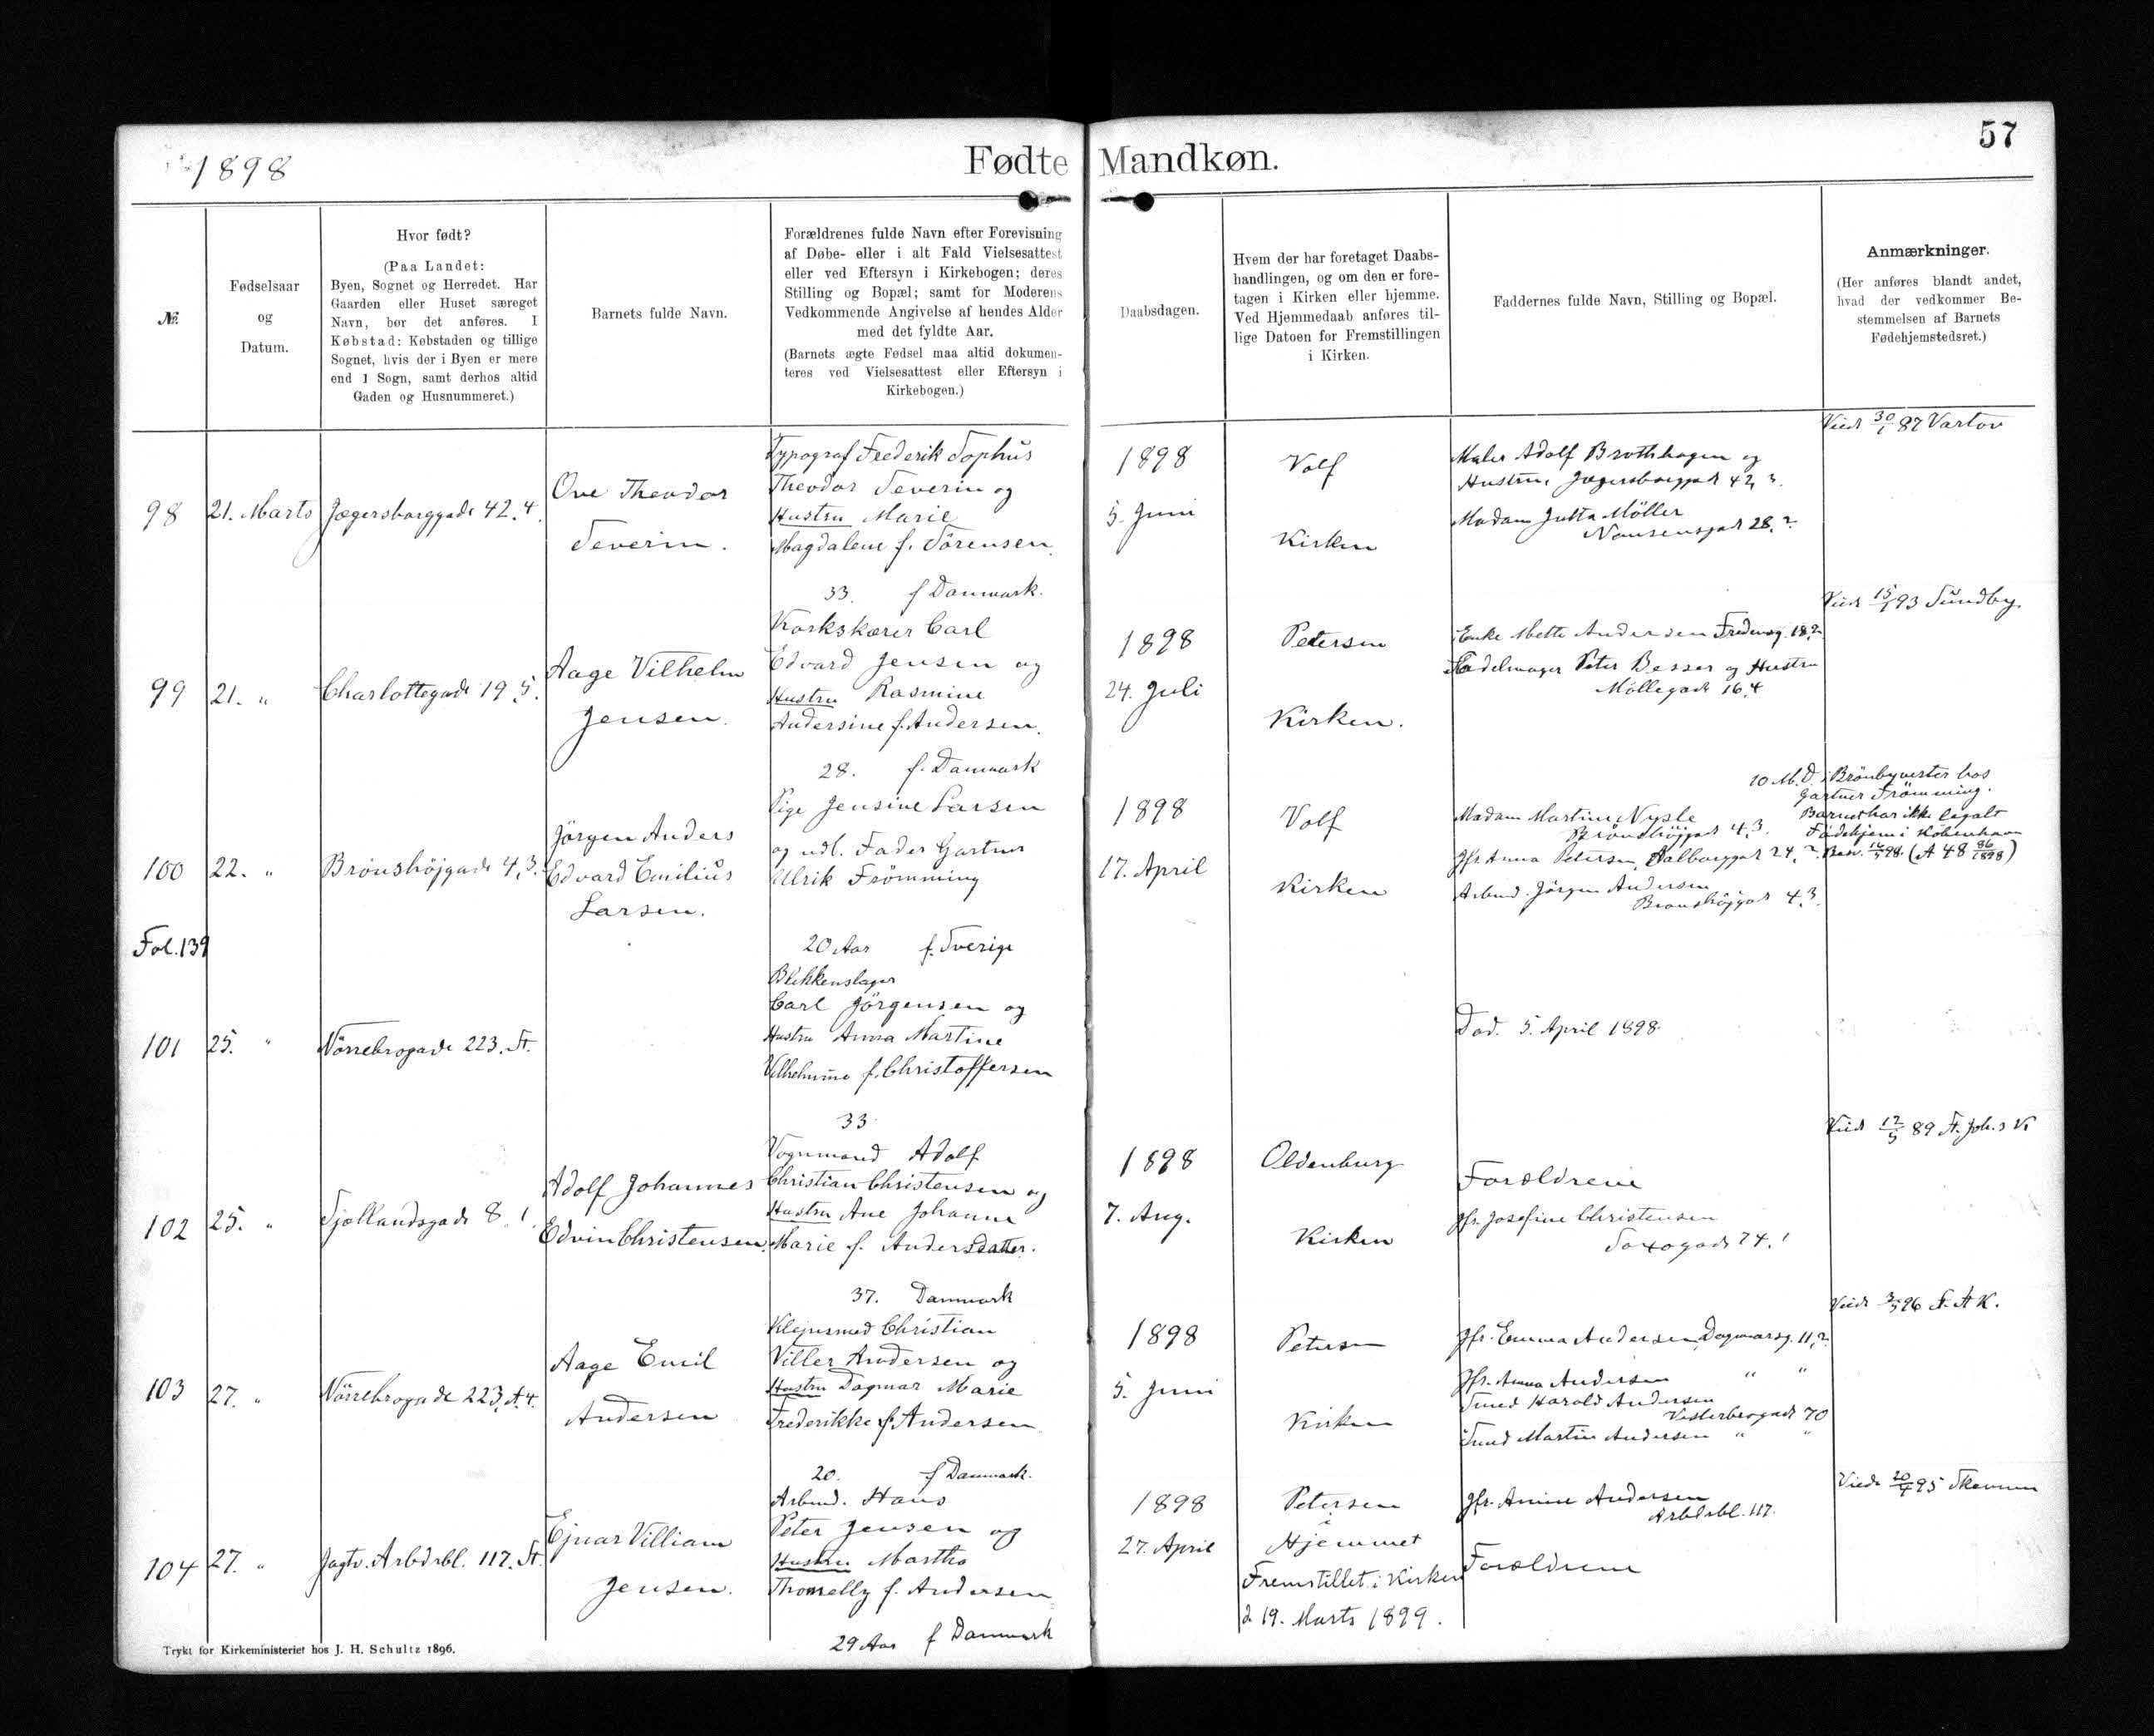 1898
Fødte Mandkøn.
57
№
Fødselsaar
og
Datum.
Hvor født?
(Paa Landet:
Byen, Sognet og Herredet. Har
Gaarden eller Huset særeget
Navn, bør det anføres. I
Købstad: Købstaden og tillige
Sognet, hvis der i Byen er mere
end 1 Sogn, samt derhos altid
Gaden og Husnummeret.)
Barnets fulde Navn.
Forældrenes fulde Navn efter Forevisning
af Døbe- eller i alt Fald Vielsesattest
eller ved Eftersyn i Kirkebogen; deres
Stilling og Bopæl; samt for Moderens
Vedkommende Angivelse af hendes Alder
med det fyldte Aar.
(Barnets ægte Fødsel maa altid dokumen-
teres ved Vielsesattest eller Eftersyn i
Kirkebogen.)
Daabsdagen.
Hvem der har foretaget Daabs-
handlingen, og om den er fore-
tagen i Kirken eller hjemme.
Ved Hjemmedaab anføres til-
lige Datoen for Fremstillingen
i Kirken.
Faddernes fulde Navn, Stilling og Bopæl.
Anmærkninger.
(Her anføres blandt andet,
hvad der vedkommer Be-
stemmelsen af Barnets
Fødehjemstedsret.)
98
21. Marts
Jægersborggade 42.4
Ove Theodor
Severin.
Typograf Frederik Sophus
Theodor Severin og
Hustru Marie
Magdalene f. Sörensen
33. f Danmark.
1898
5. Juni
Volf
Kirken
Maler Adolf Brothhagen og
Hustru, Jægersborggade 42, 3.
Madam Jutta Möller
Nansensgade 28, 2
Viede 30/1 87 Vartov
99
21. "
Charlottegade 19.5.
Aage Vilhelm
Jensen.
Korkskærer Carl
Edvard Jensen og
Hustru Rasmine
Andersine f. Andersen.
28. f. Danmark
1898
24. Juli
Petersen
Kirken.
Enke Mette Andersen Fredensg. 18.2
Sadelmager Peter Besser og Hustru
Möllegade 16.4
Viede 15/1 93 Sundby
100
22. "
Brönshöjgade 4.3.
Jörgen Anders
Edvard Emilius
Larsen.
Pige Jensine Larsen
og udl. Fader Gartner
Ulrik Frömming
20 Aar f. Sverige
1898
17. April
Volf
Kirken
Madam Martine Nysle
Brönshöjgade 4.3.
Jfr. Anna Petersen, Aalborggade 24, 2
Arbmd. Jörgen Andersen
Brönshöjgade 4.3.
10 M. D. i Brönbyvester hos
Gartner Frömming.
Barnet har ikke legalt
Födehjem i Köbenhavn
(A 48 86/1898)
Fol. 139
101
25. "
Nörrebrogade 223. St.
Blikkenslager
Carl Jörgensen og
Hustru Anna Martine
Vilhelmine f. Christoffersen
33.
Död. 5. April 1898.
102
25. "
Sjællandsgade 8.1.
Adolf Johannes
Edvin Christensen.
Vognmand Adolf
Christian Christensen og
Hustru Ane Johanne
Marie f. Andersdatter.
37. Danmark
1898
7. Aug.
Oldenburg
Kirken
Forældrene
Jfr. Josefine Christensen
Saxogade 74.1
Viede 12/5 89 St. Joh.s K
103
27. "
Nörrebrogade 223, St. 4.
Aage Emil
Andersen
Klejnsmed Christian
Viller Andersen og
Hustru Dagmar Marie
Frederikke f. Andersen
20. f Danmark.
1898
5. Juni
Petersen
Kirken
Jfr. Emma Andersen, Dagmarsg. 11, 2
Jfr. Anna Andersen " "
Smed Harald Andersen
Vesterbrogade 70
Smed Martin Andersen " "
Viede 3/5 96 St. St K.
104
27. "
Jagtv. Arbdrbl. 117. St.
Ejnar Villiam
Jensen.
Arbmd. Hans
Peter Jensen og
Hustru Martha
Thomelly f. Andersen
29 Aar f Danmark
1898
27. April
Petersen
i
Hjemmet
Fremstillet i Kirken
d. 19. Marts 1899.
Jfr. Amine Andersen
Arbdrbl. 117.
Forældrene
Viede 20/4 95 Skevum
Trykt for Kirkeministeriet hos J. H. Schultz 1896.